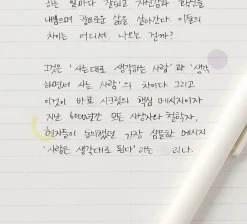 하는 말마다 잘되고 자신감과 확신을
내뿜으며 풍요로운 삶을 살아간다. 이들의
차이는 어디서 나오는 걸까?
그것은 '사는대로 생각하는 사람'과 '생각
하면서 사는 사람'의 차이다. 그리고
이것이 바로 시크릿의 핵심 메시지이자
지난 6000년간 모든 사상가와 철학자,
현자들이 논의했던 가장 심플한 메시지
'사람은 생각대로 된다' 라는 리다.